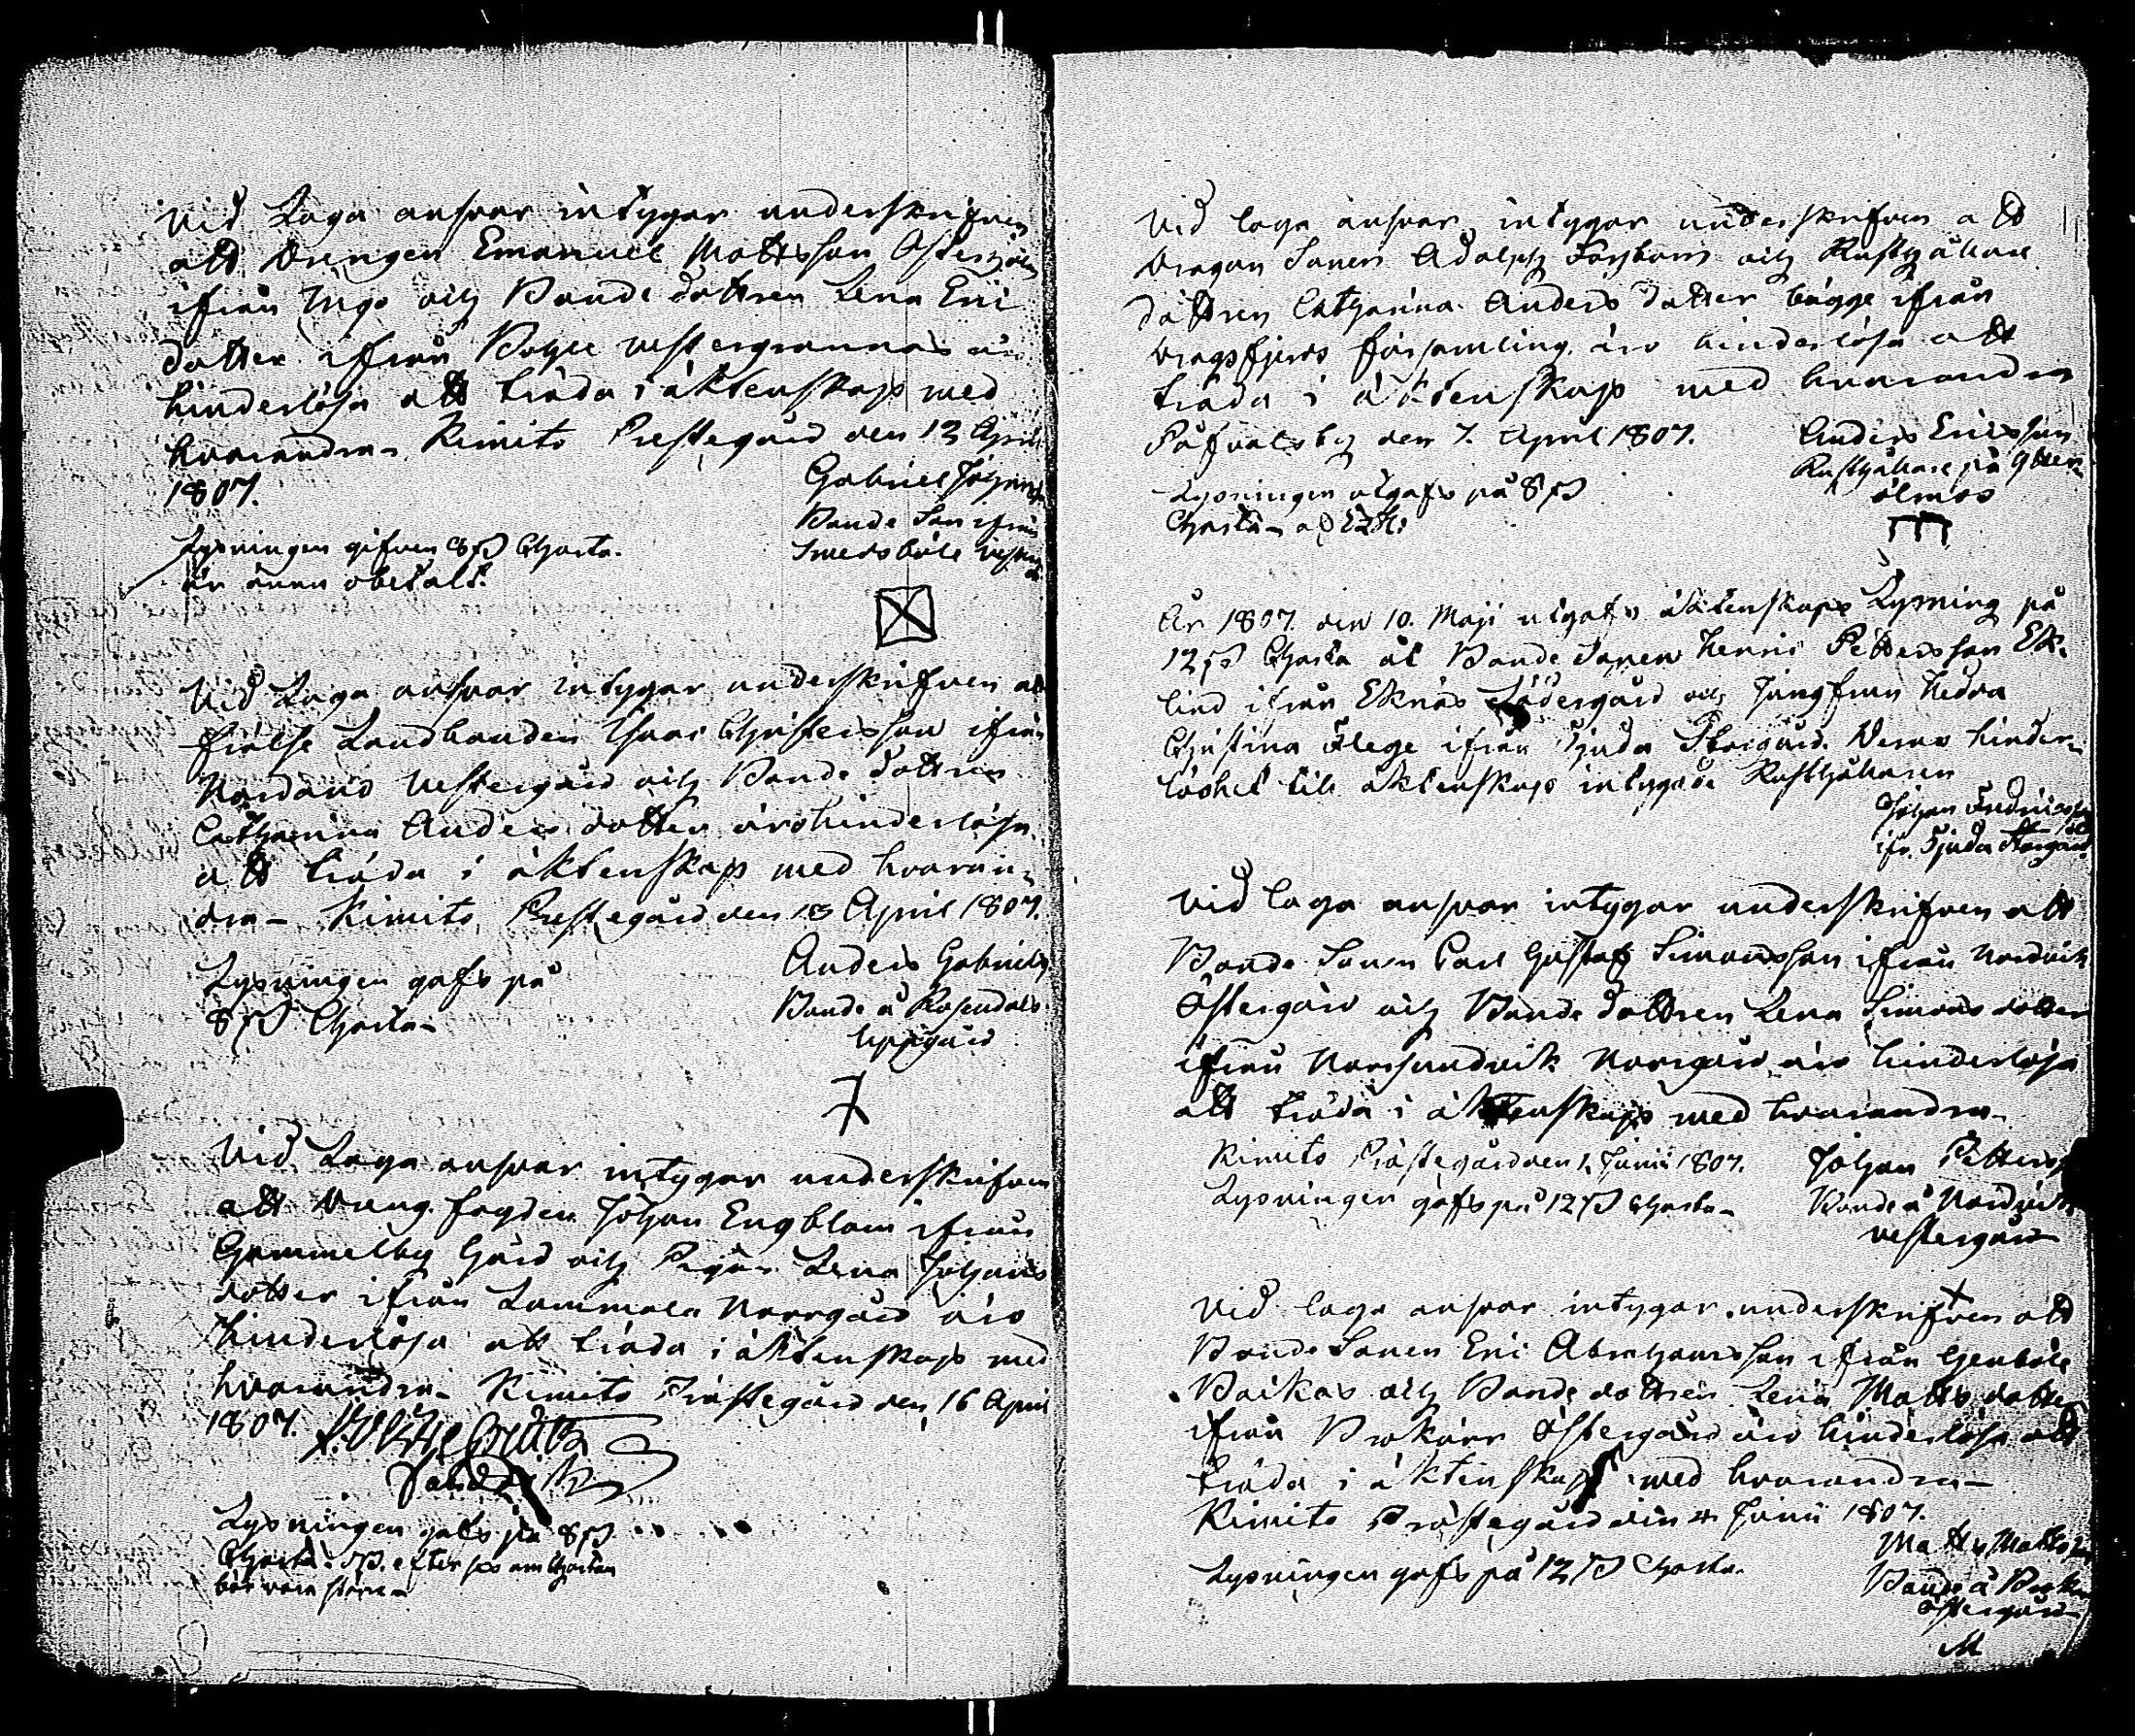 Vid Laga answar intygar underskrifven
att Drengen Emanuel Mattsson
ifrån och Bonde dottren Lena Eric
dotter ifrån Westergrannas
hinderlösa att träda i äktenskap med
hvarandra. Kimito Prestegård den 13 April
1807.
Gabriel Johans
Bonde Son ifrån
Smedsböle
Lysningen gifven 8 ß Charta.
är ännu obetalt.
Vid Laga answar intygar underskrifven att
frälse Landbonden Isaac Christersson ifrån
Nordanö Westergård och Bonde dottren
Catharina Anders dotter äro hinderlösa
att träda i äktenskap med hvaran-
dra – Kimito Prestegård den 13 April 1807.
Anders Gabriels
Bonde å Rosendals
Uppgård
Lysningen gafs på
8 ß Charta –
Vid Laga answar intygar underskrifven
att Dreng fogden Johan Engblom ifrån
Gammelby Gård och Pigan Lena Johans
dotter ifrån Lammala Norrgård äro
hinderlösa att träda i äktenskap med
hvarandra – Kimito Prästegård den 16 April
1807.
Lysningen gafs på 8 ß
Charta. efter om Chartan
bör vara större –
Vid laga answar intygar underskrifven att
Dragon Sonen Adolph Forsbom och Rusthållare
dottren Catharina Anders dotter bägge ifrån
Dragsfjerds församling äro hinderlösa att
träda i äktenskap med hvarandra
Påfvalsby den 7. April 1807.
Anders Ericsson
Rusthållare på Ytter-
ölmos
Lysningen utgafs på 8 ß
Charta –
År 1807 den 10. Maji utgafs äktenskaps Lysning på
12 ß Charta åt Bonde Sonen Henric Pettersson Ek-
lind ifrån Eknäs Södergård och Jungfrun Hedda
Christina Flege ifrån Tjuda Storgård. Deras hinder-
löshet till äktenskap intygade Rusthållaren
Johan Fredricsson
ifr. Tjuda Storgård
Vid laga answar intygar underskrifven att
Bonde Sonen Carl Gustaf Simonsson ifrån Nordvik
Östergård och Bonde dottren Lena Simons dotter
ifrån Norrsundvik Norrgård äro hinderlösa
att träda i äktenskap med hvarandra –
Kimito Prästegård den 1. Junii 1807.
Johan Petters
Bonde å Nordvik
westergård
Lysningen gafs på 12 ß Charta –
Vid laga answar intygar underskrifven att
Bonde Sonen Eric Abrahamsson ifrån Genböle
Baikas och Bonde dottren Lena Matts dotter
ifrån Brokärr Östergård äro hinderlösa att
träda i äktenskap med hvarandra –
Kimito Prästegård den 4 Junii 1807.
Matts Mattss
Bonde å Brok
Östergård
M
Lysningen gafs på 12 ß Charta.